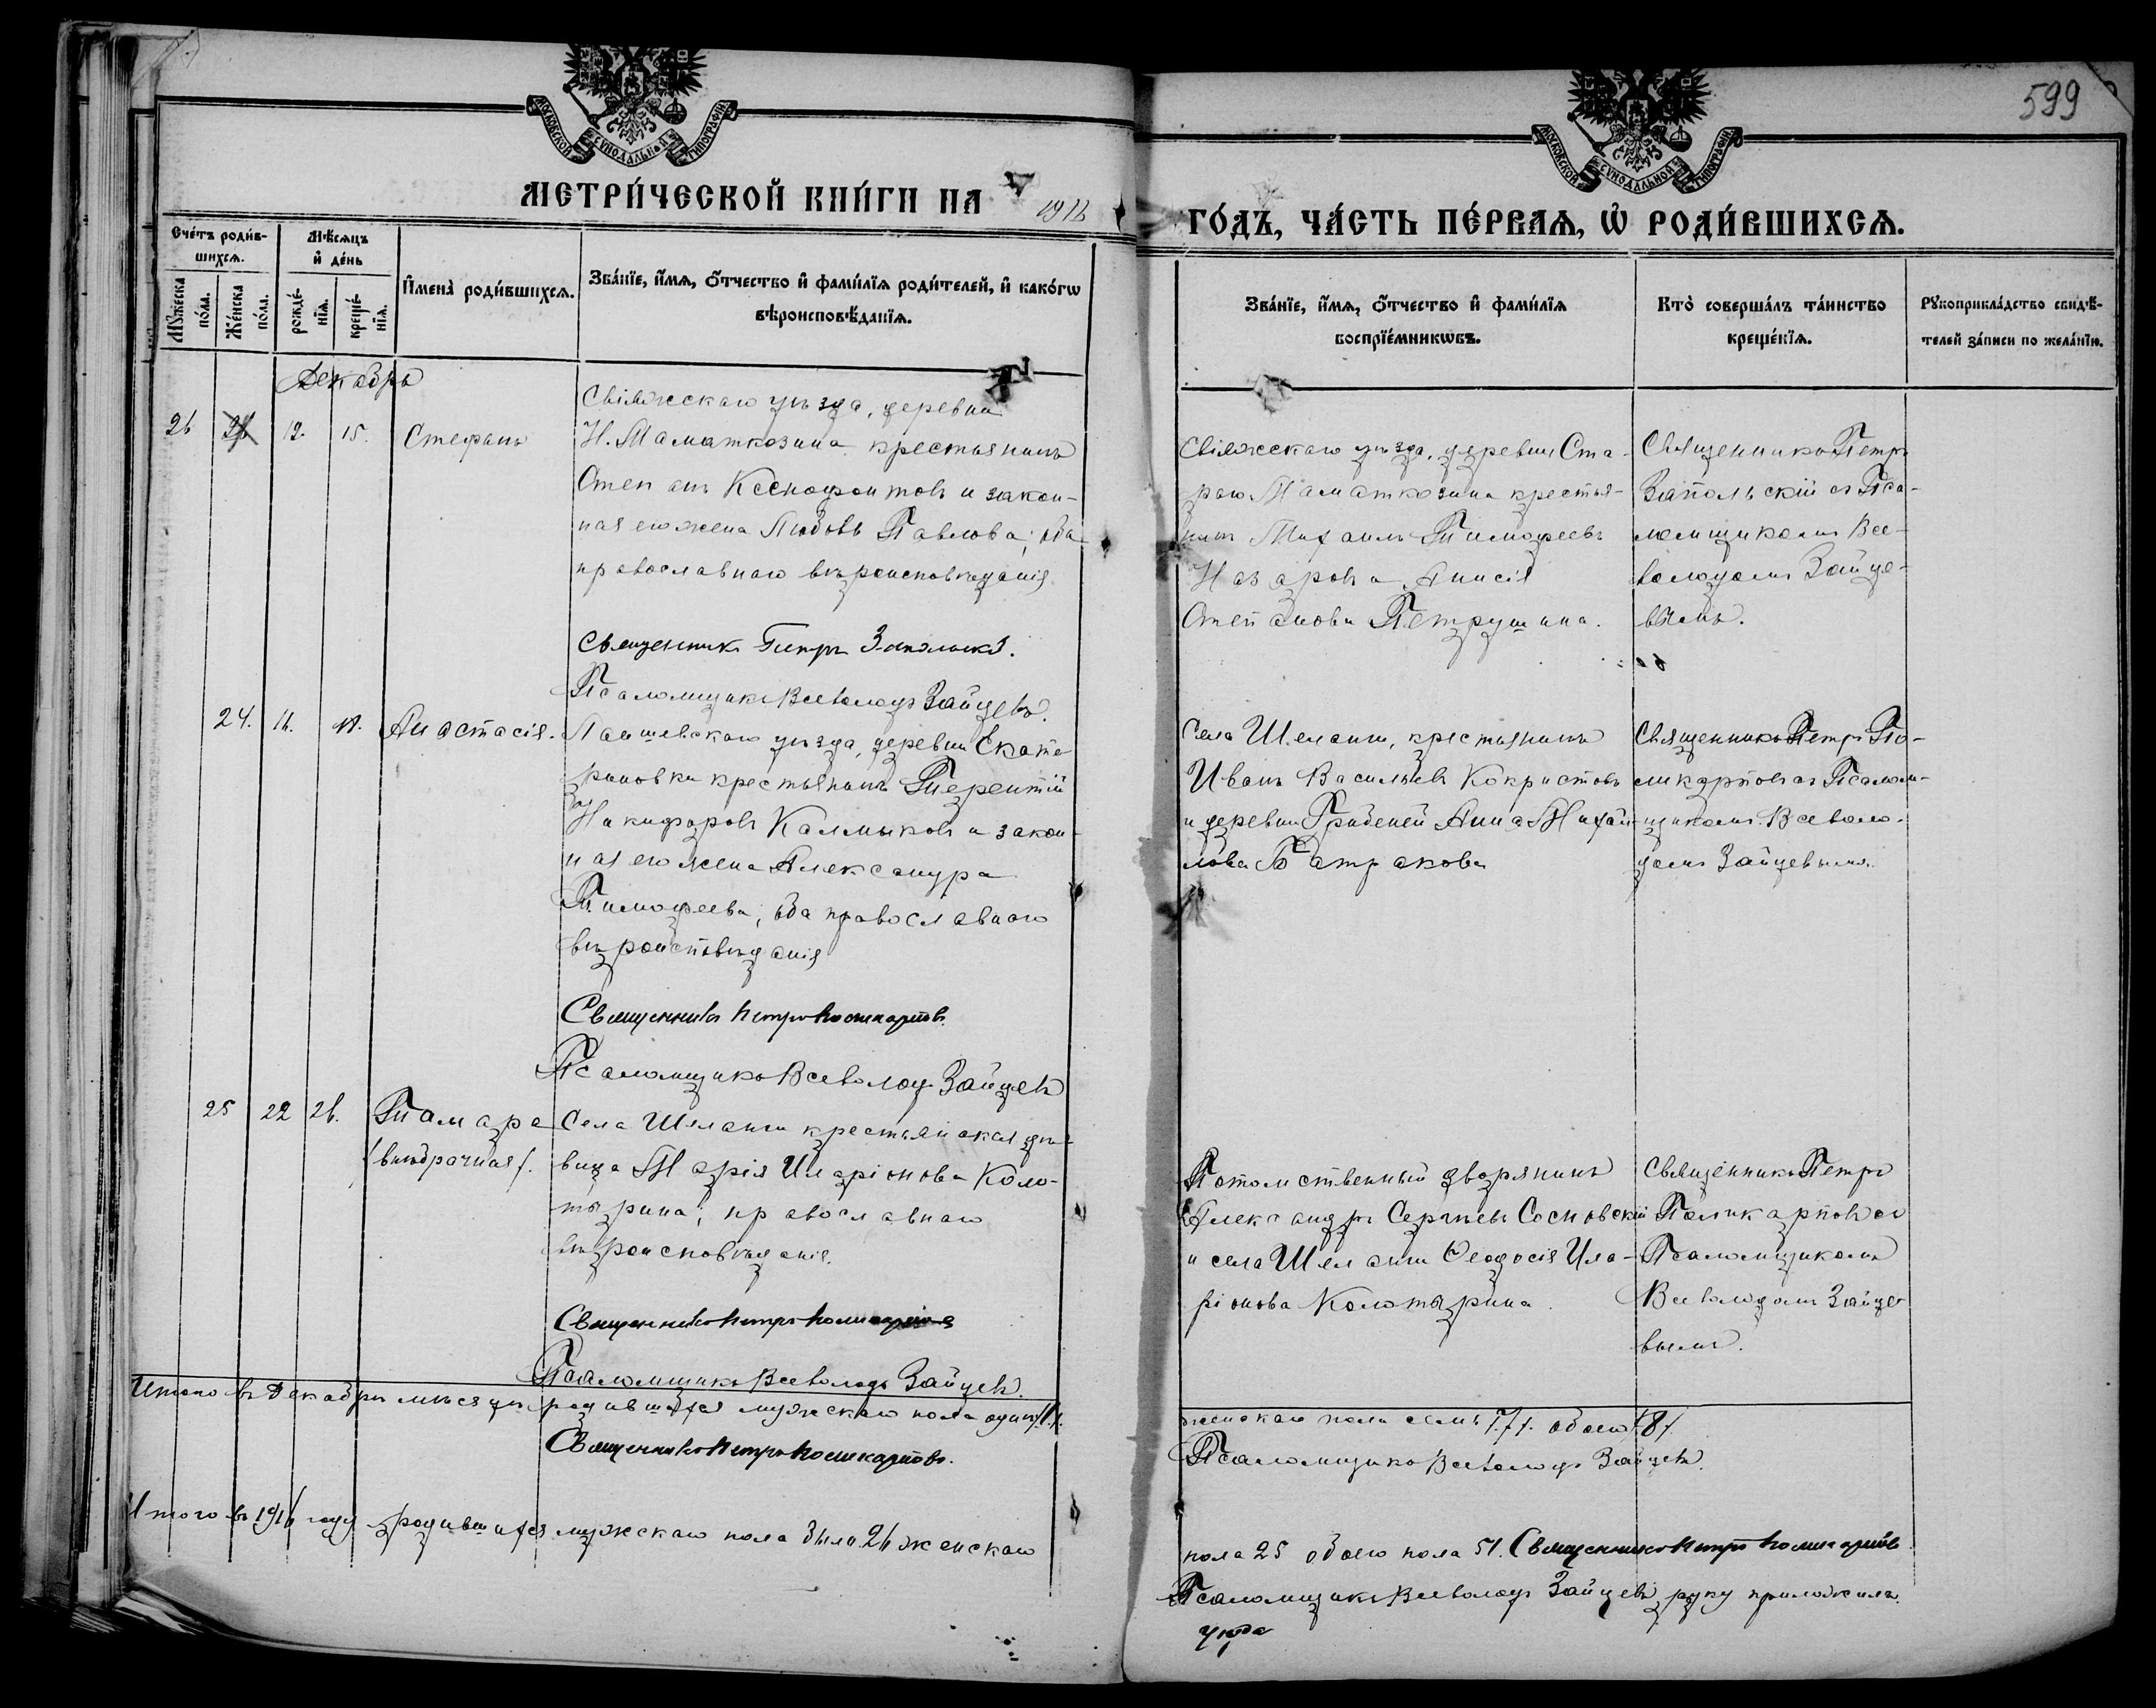 599
МОСКОВСКОЙ СѴНОДАЛЬНОЙ ТИПОГРАФІИ
МОСКОВСКОЙ СѴНОДАЛЬНОЙ ТИПОГРАФІИ
МЕТРИ́ЧЕСКОЙ КНИ́ГИ НА 1916
ГО́ДЪ, ЧА́СТЬ ПЕ́РВАЯ, Ѡ҆ РОДИ́ВШИХСЯ.
Счетъ роди́в-
шихся.
Му́жеска по́ла.
Же́нска по́ла.
Мѣ́сяцъ
и҆ де́нь
рожде́-
нїя.
креще́-
нїя.
И҆мена̀ роди́вшихся.
Зва́нїе, и҆́мя, ѻ҆́тчество и҆ фами́лїя роди́телей, и҆ како́гѡ
вѣроисповѣ́данїя.
Зва́нїе, и҆́мя, ѻ҆́тчество и҆ фами́лїя
воспрїе́мникѡвъ.
Кто̀ соверша́лъ та́инство
креще́нїя.
Рꙋкоприкла́дство свидѣ́-
телей за́писи по жела́нїю.
Декабрь
26
12. 15. Стефанъ
Свіяжскаго уѣзда, деревни
Н. Маматкозина крестьянинъ
Степанъ Ксенофонтовъ и закон-
ная его жена Любовь Павлова; оба
православнаго вѣроисповѣданія
Священникъ Петръ Запольскій.
Псаломщикъ Всеволодъ Зайцевъ.
Свіяжскаго уѣзда, деревни Ста-
раго Маматкозина крестья-
нинъ Михаилъ Тимофеевъ
Назаровъ и Анисія
Степанова Петрушина.
Священникъ Петръ
Запольскій съ Пса-
ломщикомъ Все-
володомъ Зайце-
вымъ.
24. 16. Анастасія.
Лаишевскаго уѣзда, деревни Екате-
риновки крестьянинъ Терентій
Никифоровъ Калмыковъ и закон-
ная его жена Александра
Тимофеева; оба православнаго
вѣроисповѣданія
Священникъ Петръ Поликарповъ.
Псаломщикъ Всеволодъ Зайцевъ
Села Шеланги, крестьянинъ
Иванъ Васильевъ Кокристовъ
и деревни Гребеней Анна Михай-
лова Батракова
Священникъ Петръ По-
ликарповъ съ Псалом-
щикомъ Всеволо-
домъ Зайцевымъ.
25 22 26. Тамара
(внѣбрачная).
Села Шеланги крестьянская дѣ-
вица Марія Иларіонова Коло-
тырина; православнаго
вѣроисповѣданія.
Священникъ Петръ Поликарповъ
Псаломщикъ Всеволодъ Зайцевъ.
Потомственный дворянинъ
Александръ Сергѣевъ Сосновскій
и села Шеланги Ѳеодосія Ила-
ріонова Колотырина.
Священникъ Петръ
Поликарповъ съ
Псаломщикомъ
Всеволодомъ Зайце-
вымъ.
Итого въ Декабрѣ мѣсяцѣ родившихся мужскаго пола одинъ /1/.
женскаго пола семь /7/. обоего /8/.
Священникъ Петръ Поликарповъ.
Псаломщикъ Всеволодъ Зайцевъ.
Итого въ 1916 году родившихся мужскаго пола было 26 женскаго
пола 25 обоего пола 51. Священникъ Петръ Поликарповъ
Псаломщикъ Всеволодъ Зайцевъ руку приложилъ.